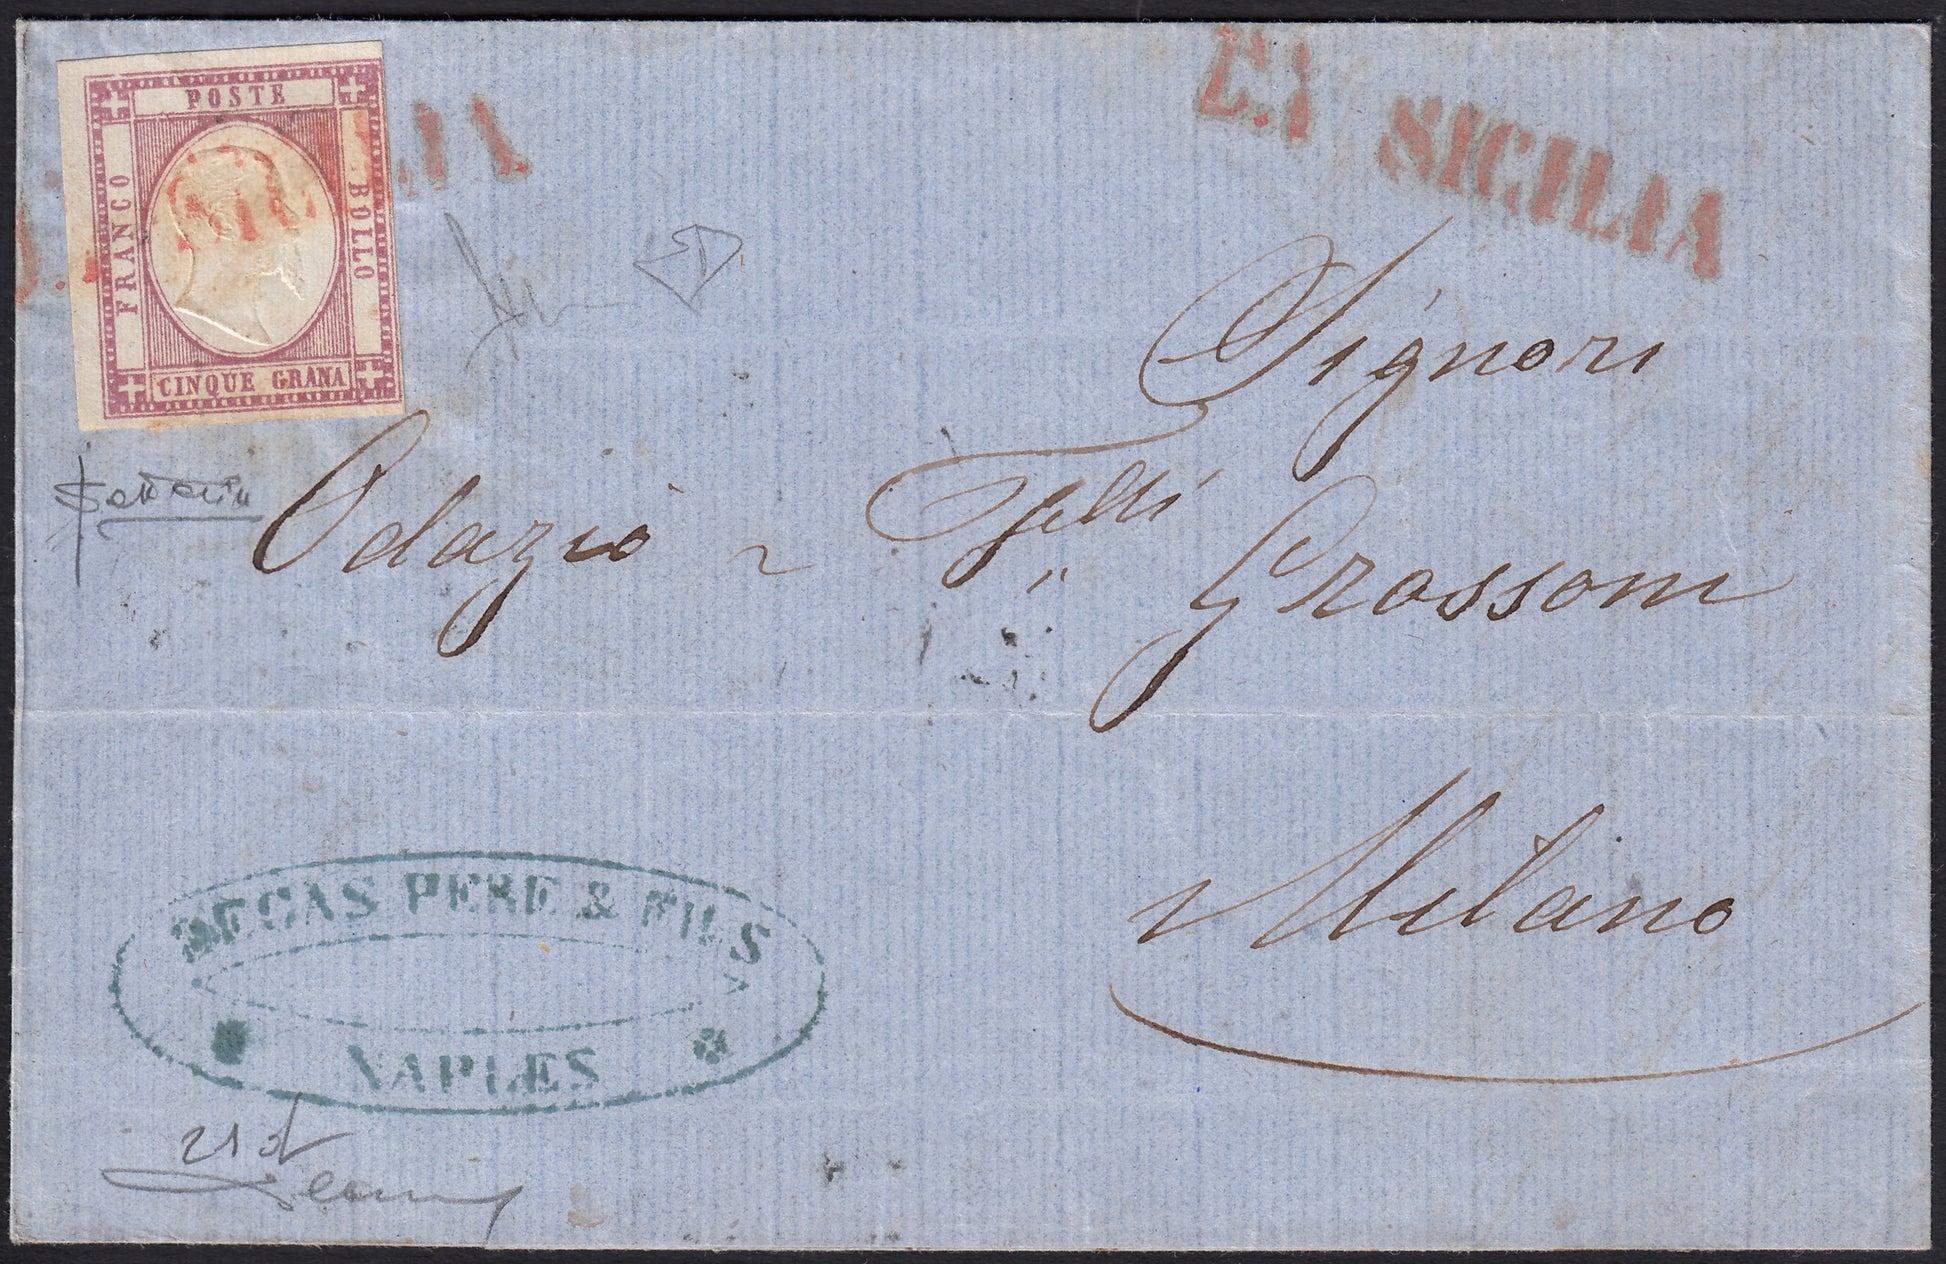 POSTE
FRANCO
BOLLO
CINQUE GRANA
DA SICILIA
Signori
Odazio - Felli Grassoni
Milano
DEGAS PERE & FILS
NAPLES